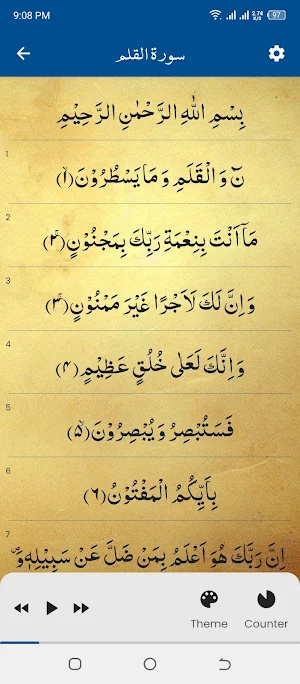 9:08 PM 2.74 K/S 97
سورة القلم
بِسْمِ اللهِ الرَّحْمٰنِ الرَّحِيْمِ
1
نٓ وَ الْقَلَمِ وَ مَا يَسْطُرُوْنَ(۱)ۙ
2
مَاۤ اَنْتَ بِنِعْمَةِ رَبِّكَ بِمَجْنُوْنٍ(۲)ۚ
3
وَ اِنَّ لَكَ لَاَجْرًا غَیْرَ مَمْنُوْنٍ(۳)ۚ
4
وَ اِنَّكَ لَعَلٰى خُلُقٍ عَظِیْمٍ(۴)
5
فَسَتُبْصِرُ وَ یُبْصِرُوْنَ(۵)ۙ
6
بِاَیِّكُمُ الْمَفْتُوْنُ(۶)
7
اِنَّ رَبَّكَ هُوَ اَعْلَمُ بِمَنْ ضَلَّ عَنْ سَبِیْلِهٖ۪ وَ
Theme Counter